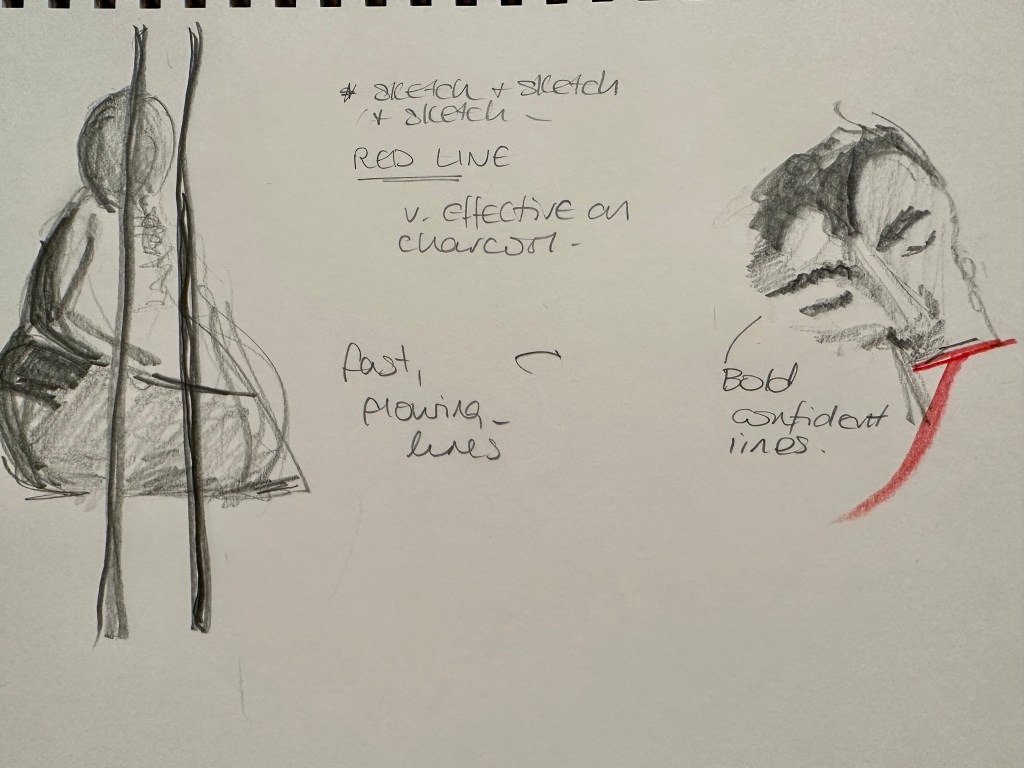 * sketch + sketch
+ sketch –
RED LINE
v. effective on
charcoal -
fast,
flowing –
lines
Bold
confident
lines.